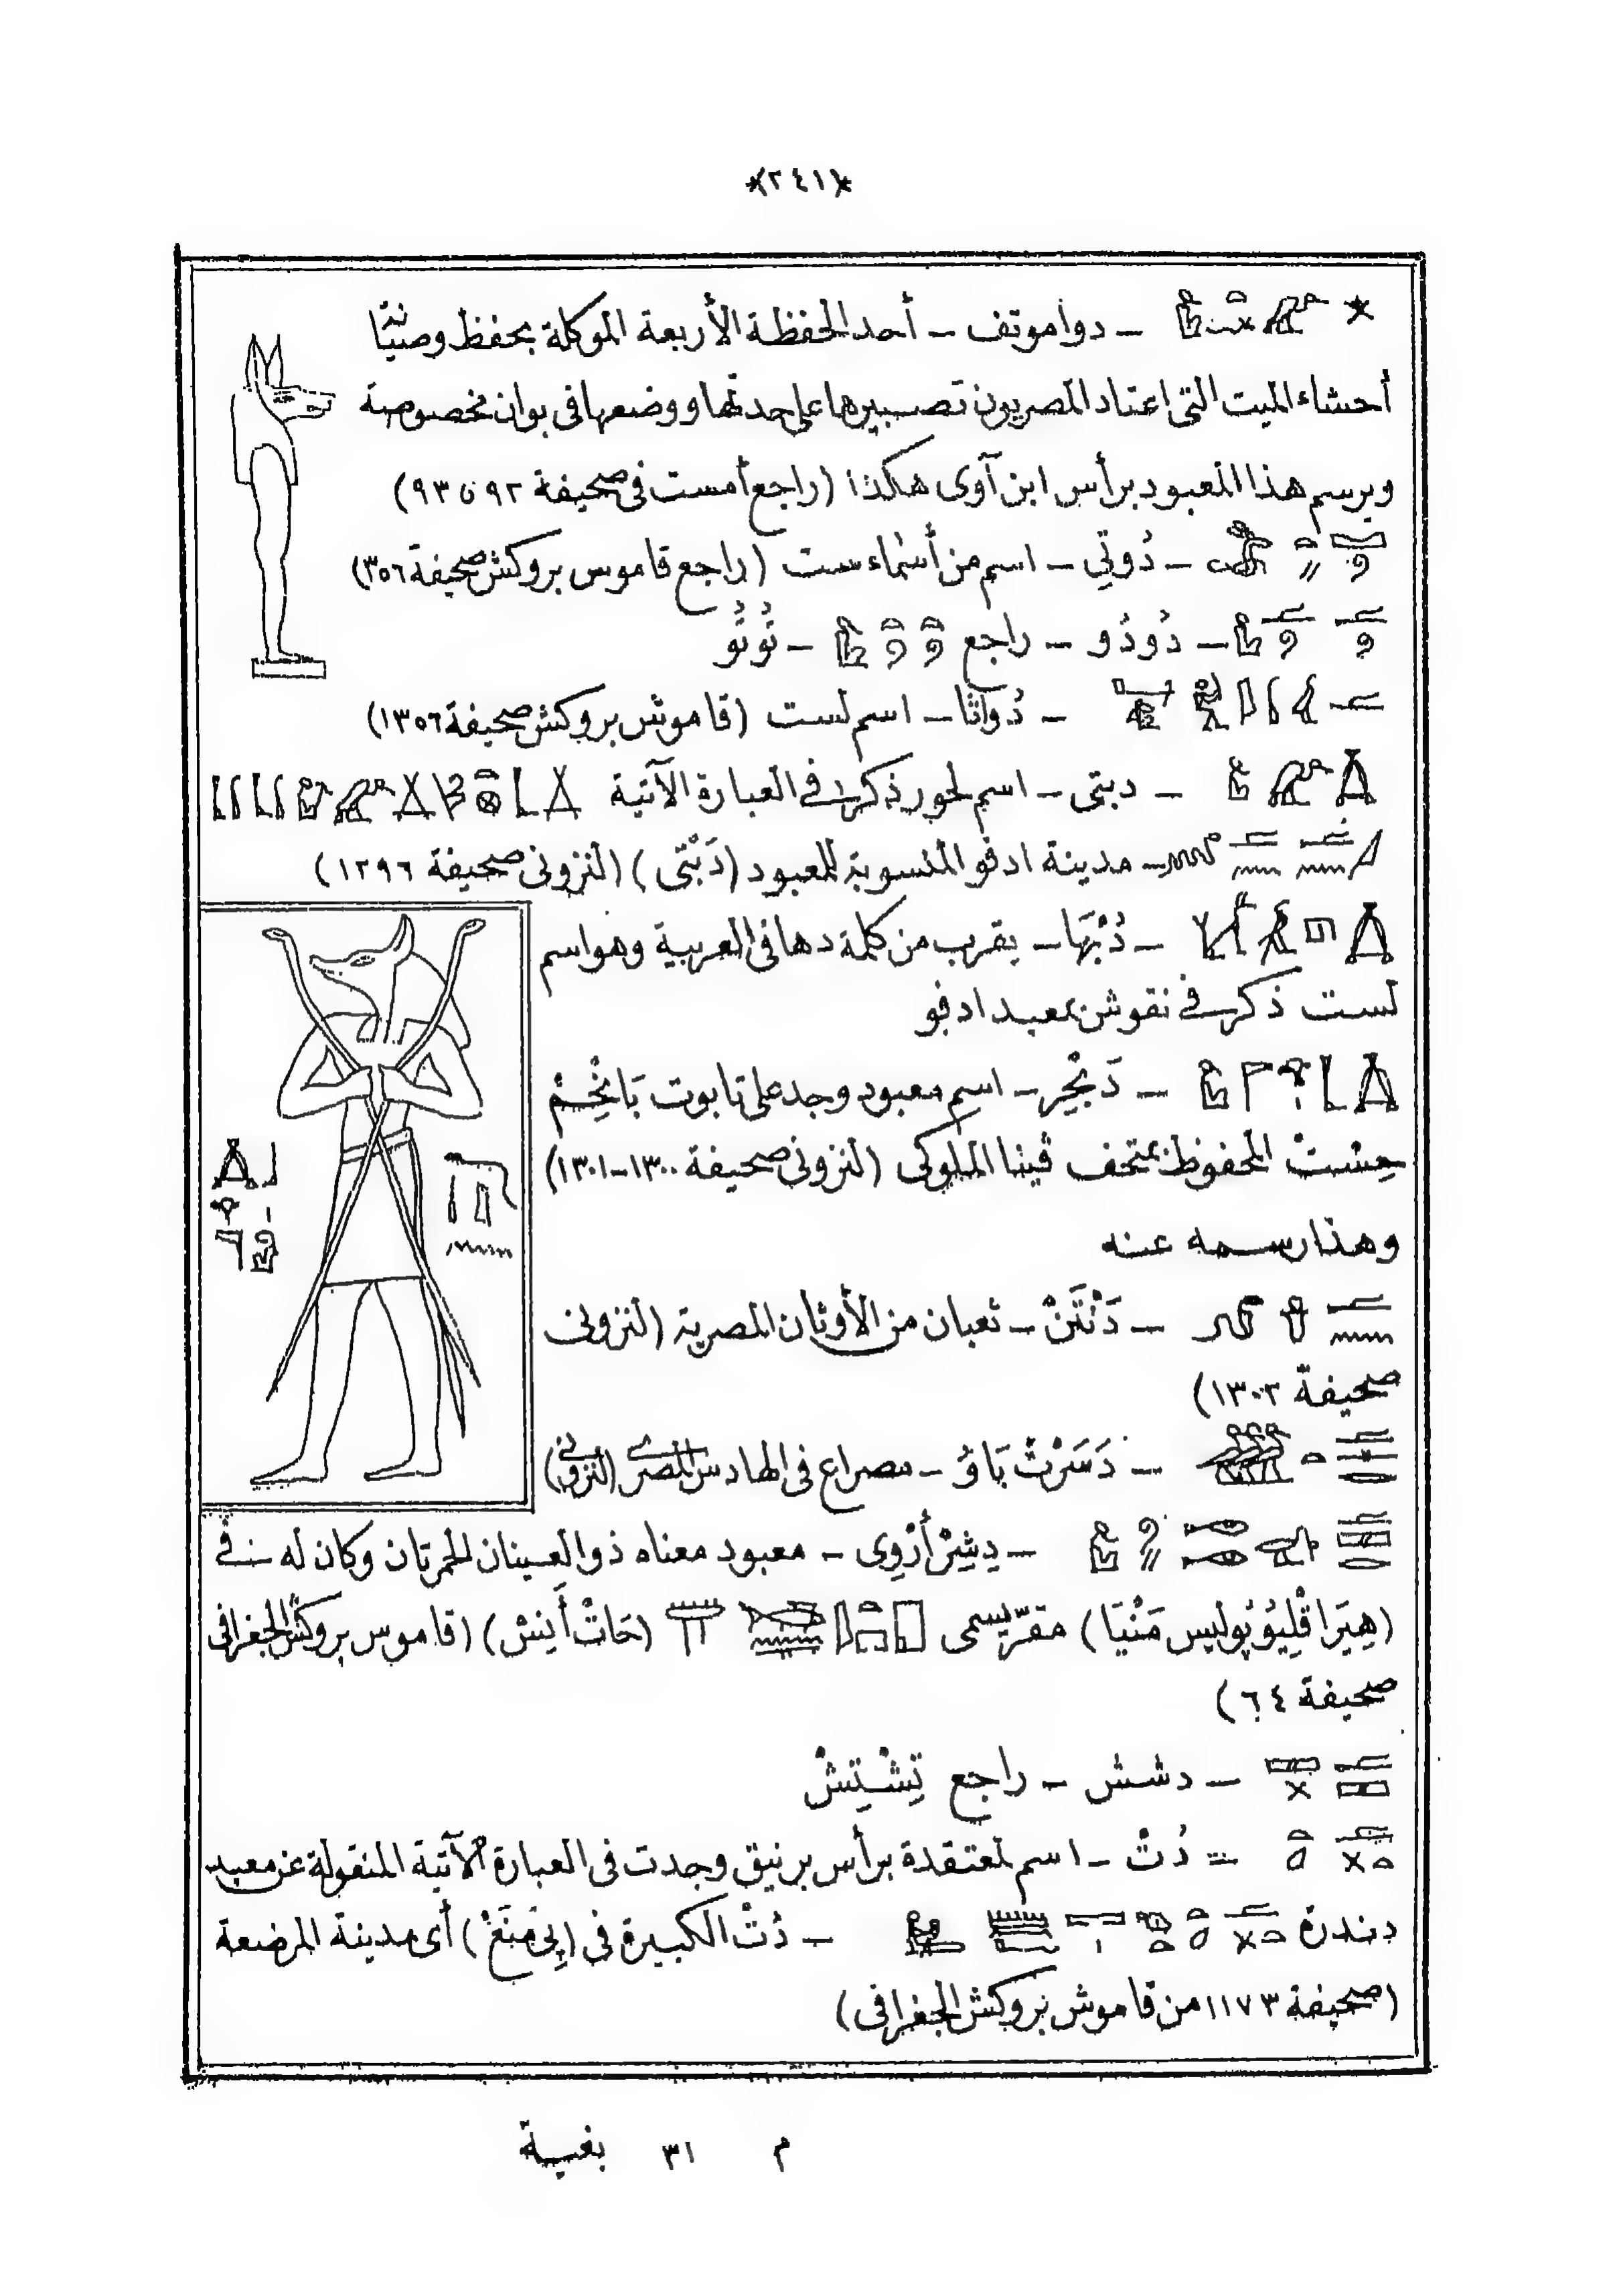 *(٢٤١)*
– دواموتف – أحد الحفظة الأربعة الموكلة بحفظ وصيانة
أحشاء الميت التى اعتاد المصريون تصبيرها على حدتها ووضعها فى بوان مخصوصة
ويرسم هذا المعبود برأس ابن آوى هكذا (راجع أمست فى صحيفة ٩٢ و ٩٣)
– دُوتِي – اسم من أسماء ست (راجع قاموس بروكش صحيفة ٣٥٦)
– دُودُو – راجع – تُوتُو
– دُوَاتَا – اسم لست (قاموس بروكش صحيفة ١٣٥٦)
– دبتى – اسم لحور ذكر فى العبارة الآتية
– مدينة ادفو المنسوبة للمعبود (دَبْتَى) (لنزونى صحيفة ١٢٩٦)
– دُبْهَا – يقرب من كلمة دها فى العربية وهو اسم
لست ذكر فى نقوش معبد ادفو
– دَبْحِر – اسم معبود وجد على تابوت
المحفوظ بمتحف ڤينا الملوكى (لنزونى صحيفة ١٣٠٠–١٣٠١)
وهذا رسمه عنه
– دَنْتَنْ – ثعبان من الأوثان المصرية (لنزونى
صحيفة ١٣٠٢)
– دَسَرْتْ بَاوُ – مصراع فى الهادس المصرى (لنزونى)
– دِشِرْ أَرْوِى – معبود معناه ذو العينان الحمرتان وكان له فى
(هِيَرَاقْلِيُوُپُوليس مَنْيَا) مقرّ يسمى (حَاتْ أَنِيسْ) (قاموس بروكش الجغرافى
صحيفة ٦٤)
– دشش – راجع تِشْتِشْ
– دُتْ – اسم لمعتقدة برأس برنيق وجدت فى العبارة الآتية المنقولة عن معبد
دندرة – دُتْ الكبيرة فى (پِى مَنَعْ) أى مدينة المرضعة
(صحيفة ١١٧٣ من قاموس بروكش الجغرافى)
م ٣١ بغية